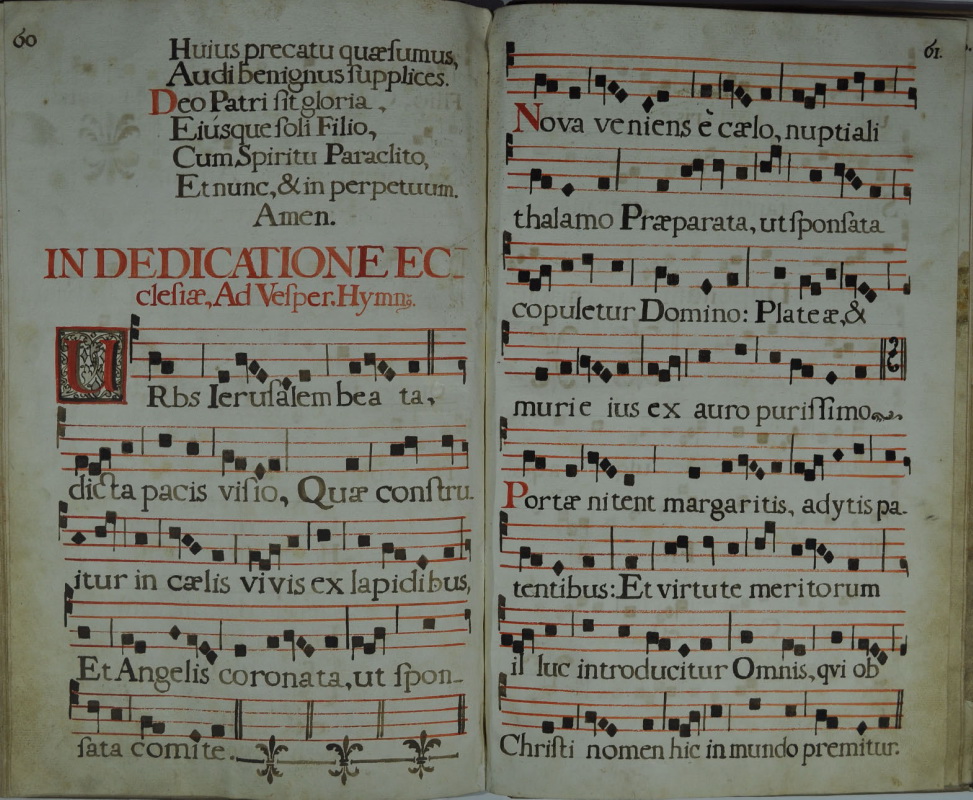 60
Huius precatu quæſumus,
Audi benignus ſupplices.
Deo Patri ſit gloria,
Eiúsque ſoli Filio,
Cum Spiritu Paraclito,
Et nunc, & in perpetuum.
Amen.
IN DEDICATIONE EC-
cleſiæ, Ad Veſper. Hymn9.
URbs Ieruſalem bea ta,
dicta pacis viſio, Quæ conſtru-
itur in cælis vivis ex lapidibus,
Et Angelis coronata, ut ſpon-
ſata comite.
61.
Nova veniens è cælo, nuptiali
thalamo Præparata, ut ſponſata
copuletur Domino: Plateæ, &
murie ius ex auro puriſſimo
Portæ nitent margaritis, adytis pa-
tentibus: Et virtute meritorum
il luc introducitur Omnis, qvi ob
Chriſti nomen hic in mundo premitur.